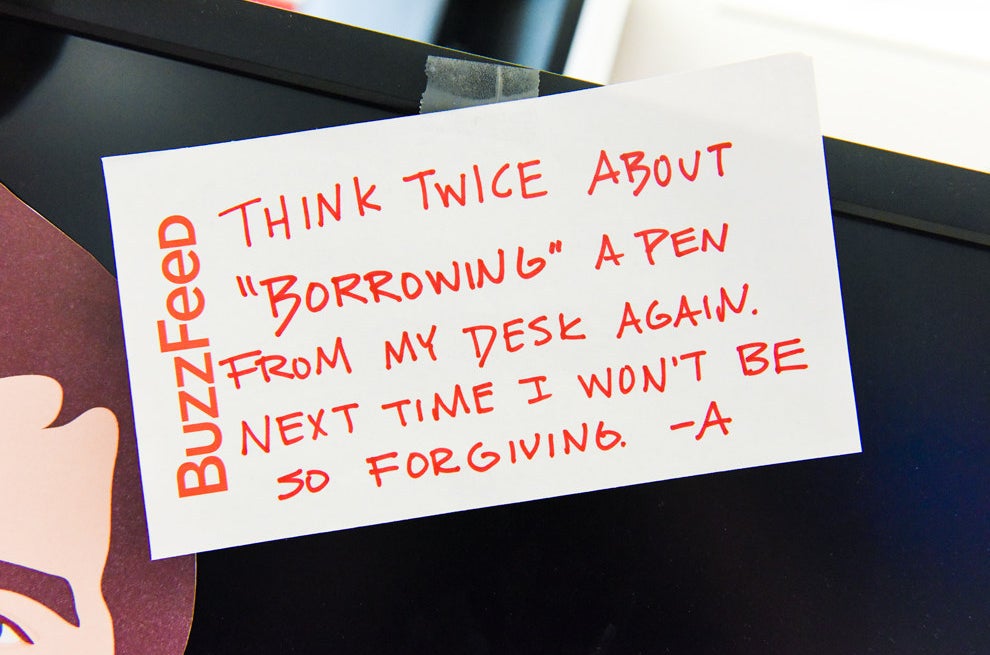 BuzzFeed
THINK TWICE ABOUT
"BORROWING" A PEN
FROM MY DESK AGAIN.
NEXT TIME I WON'T BE
SO FORGIVING. -A